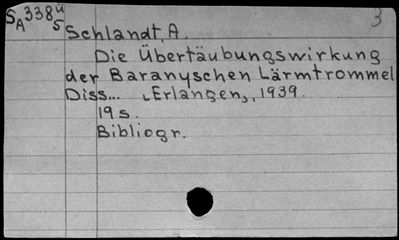 S A 338 ü 5 3
Schlandt, A.
Die Übertäubungswirkung
der Baranyschen Lärmtrommel
Diss... ⌞Erlangen⌟, 1939.
19 s.
Bibliogr.